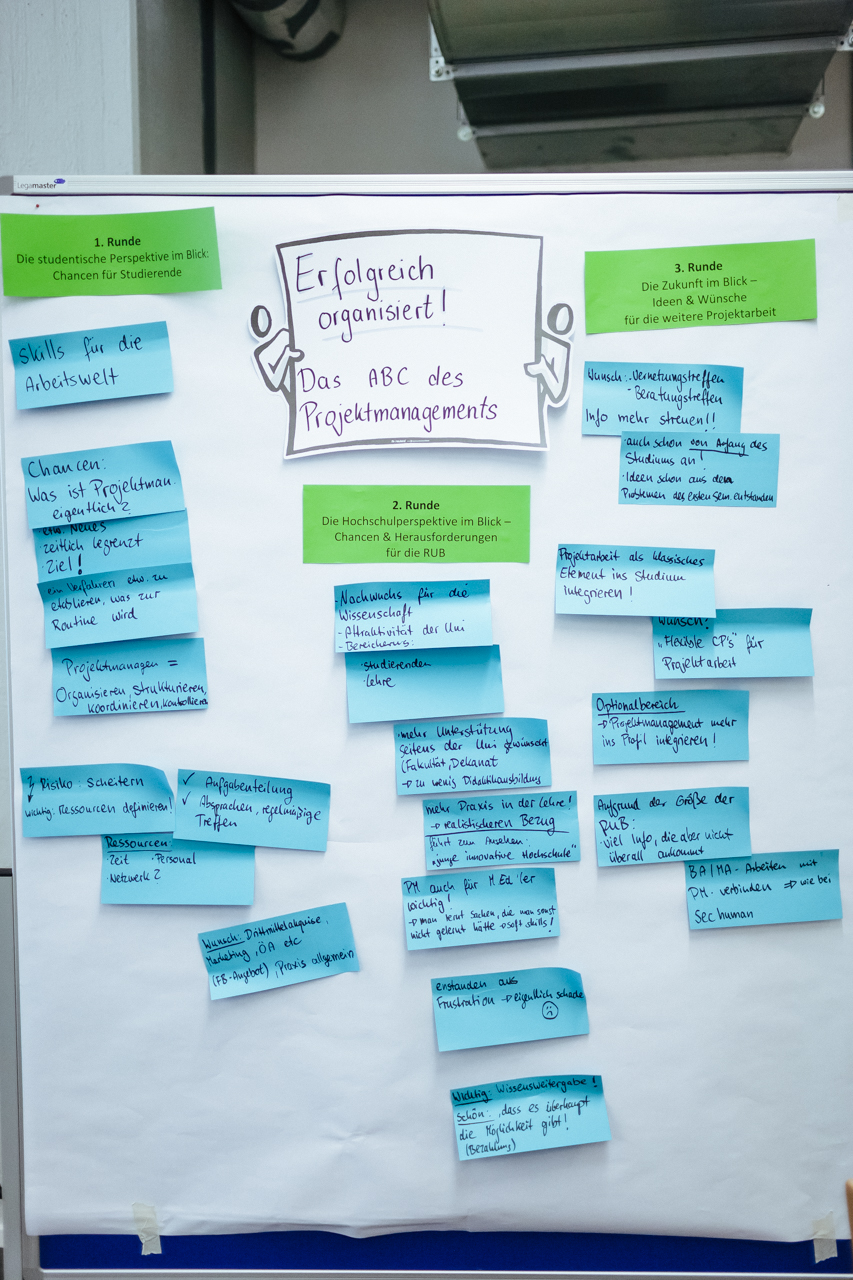 Legamaster
1. Runde
Die studentische Perspektive im Blick:
Chancen für Studierende
Skills für die
Arbeitswelt
Chancen:
Was ist Projektman.
eigentlich?
etw. Neues
·zeitlich begrenzt
·Ziel!
ein Verfahren etw. zu
etablieren, was zur
Routine wird
Projektmanagen =
Organisieren, strukturieren,
koordinieren, kontrollieren
Risiko: Scheitern
wichtig: Ressourcen definieren!
✓ Aufgabenteilung
✓ Absprachen, regelmäßige
Treffen
Ressourcen:
Zeit ·Personal
·Netzwerk?
Wunsch: Drittmittelakquise,
Marketing, ÖA etc
(FB-Angebot), Praxis allgemein
Erfolgreich
organisiert!
Das ABC des
Projektmanagements
2. Runde
Die Hochschulperspektive im Blick –
Chancen & Herausforderungen
für die RUB
·Nachwuchs für die
Wissenschaft
-Attraktivität der Uni
-Bereicherung:
·studierenden
·Lehre
·mehr Unterstützung
seitens der Uni gewünscht
(Fakultät, Dekanat
→ zu wenig Didaktikausbildung
mehr Praxis in der Lehre!
→ realistischeren Bezug
führt zum Ansehen:
"junge innovative Hochschule"
PM auch für M.Ed'ler
wichtig!
→ man lernt Sachen, die man sonst
nicht gelernt hätte → soft skills!
enstanden aus
Frustration → eigentlich schade
☹
Wichtig: Wissensweitergabe!
Schön: ,dass es überhaupt
die Möglichkeit gibt!
(Bezahlung)
3. Runde
Die Zukunft im Blick –
Ideen & Wünsche
für die weitere Projektarbeit
Wunsch:·Vernetzungstreffen
-Beratungstreffen
Info mehr streuen!!
·auch schon von Anfang des
Studiums an!
·Ideen schon aus den
Problemen des ersten Sem. entstanden
Projektarbeit als klassisches
Element ins Studium
integrieren!
Wunsch:
"Flexible CP's" für
Projektarbeit
Optionalbereich
→ Projektmanagement mehr
ins Profil integrieren!
Aufgrund der Größe der
RUB:
·viel Info, die aber nicht
überall ankommt
BA/MA-Arbeiten mit
PM·verbinden ⇒ wie bei
Sechuman